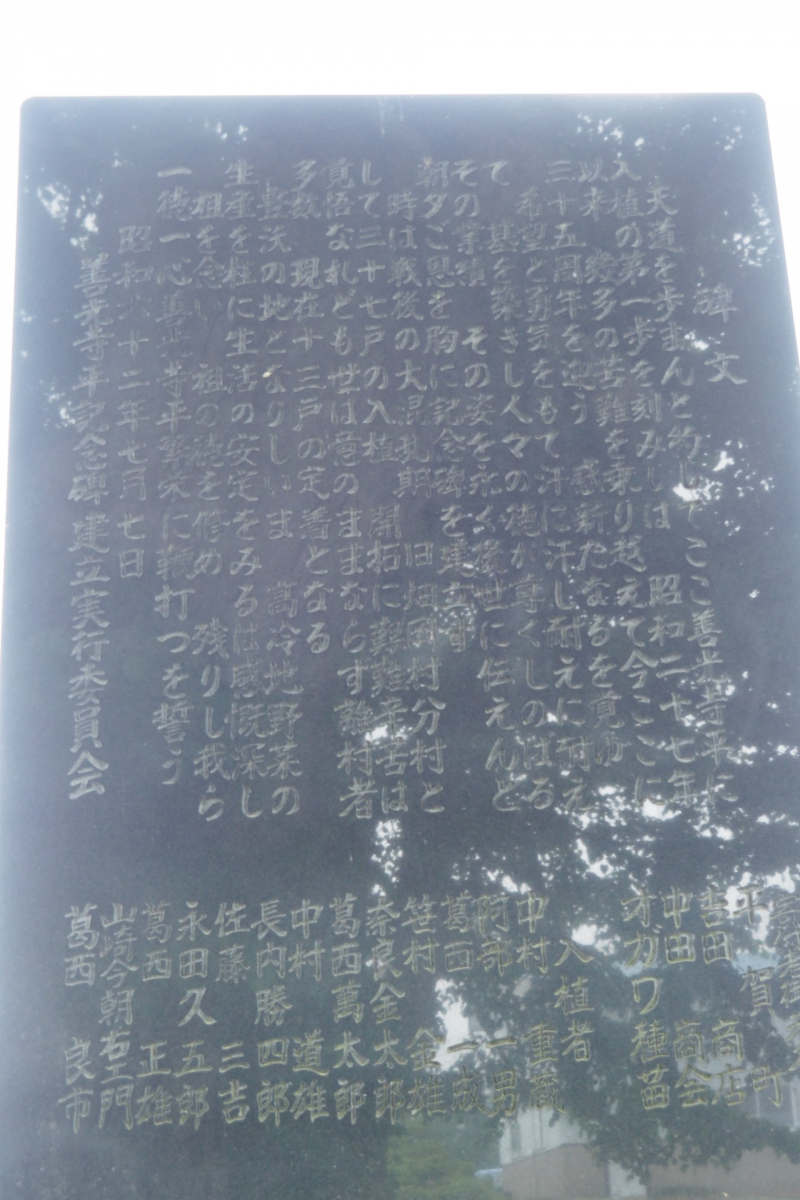 碑文
天道を歩まんと約してここ善光寺平に
入植の第一歩を刻みしは 昭和二十七年
以来 幾多の苦難を乗り越えて今ここに
三十五周年を迎う 感新たなるを覚ゆ
希望と勇気をもて汗に汗し耐えに耐え
て 基を築きし人々の徳が尊くしのばる
その業績 その姿を永く後世に伝えんと
朝夕ご恩を胸に記念碑を建立す
時は戦後の大混乱期 旧畑岡村分村と
して三十七戸の入植 開拓に艱難辛苦は
覚悟なれども世は意のままならず離村者
多数 現在十三戸の定着となる
豊沃の地となりしいま 高冷地野菜の
生産を柱に生活の安定をみるは感慨深し
祖を念い 祖の徳を修め 残りし我ら
一徳一心善光寺平繁栄に鞭打つを誓う
昭和六十二年七月七日
善光寺平記念碑建立実行委員会
平賀町
吉田商店
中田商会
オガワ種苗
入植者
中村重蔵
阿部一男
葛西一成
笹村金雄
奈良金太郎
葛西萬太郎
中村道雄
長内勝四郎
佐藤三吉
永田久五郎
葛西正雄
山崎今朝右エ門
葛西良市